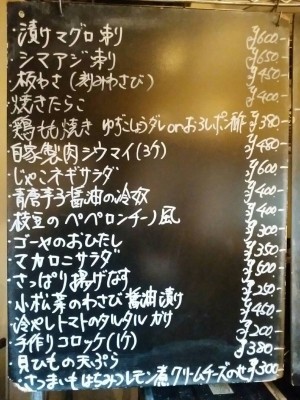 ・漬けマグロ刺り ¥600-
・シマアジ刺り ¥650
・板わさ(刻みわさび) ¥450
・焼きたらこ ¥400-
・鶏もも焼き ゆずこしょうダレonおろしポン酢 ¥380
・自家製肉シウマイ(3ケ) ¥480
・じゃこネギサラダ ¥600
・青唐辛子醤油の冷奴 ¥400
・枝豆のペペロンチーノ風 ¥400
・ゴーヤのおひたし ¥300
・マカロニサラダ ¥350
・さっぱり揚げなす ¥500
・小松菜のわさび醤油漬け ¥250
・冷やしトマトのタルタルガリ ¥450
・手作りコロッケ(1ケ) ¥200-
・貝ひもの天ぷら ¥380-
・さつまいもはちみつレモン煮 クリームチーズのせ ¥300